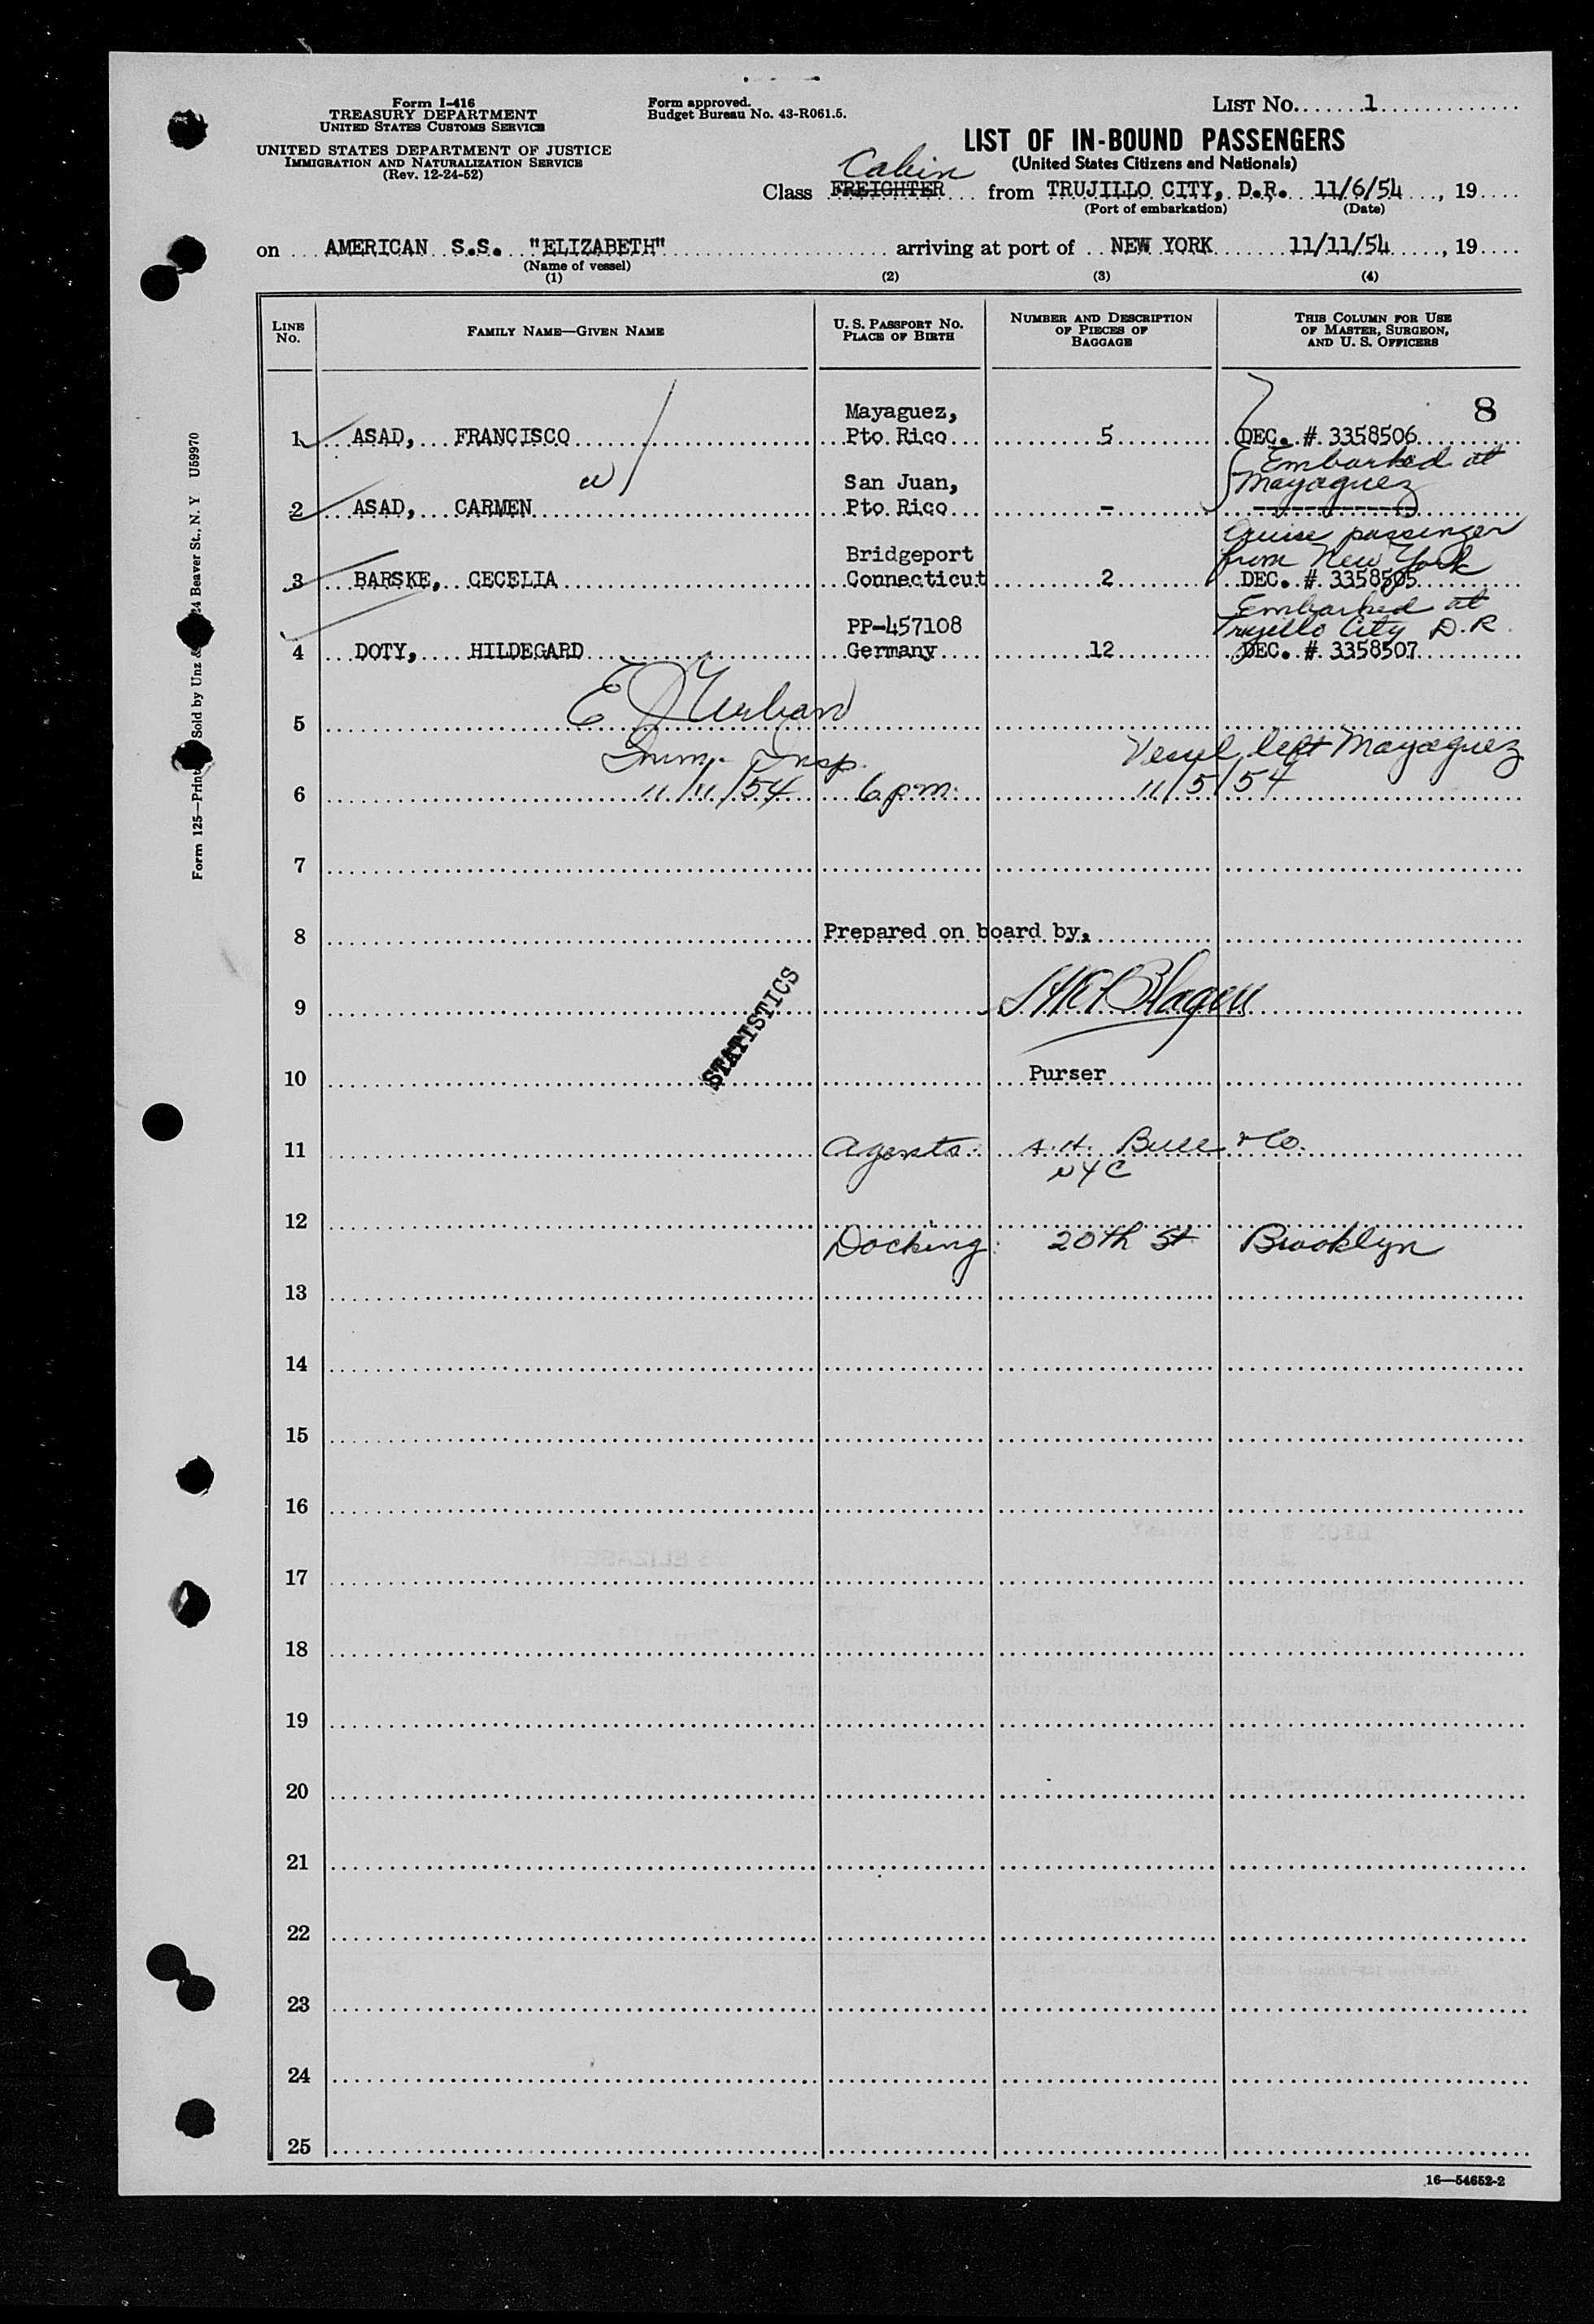 Form I-416
TREASURY DEPARTMENT
UNITED STATES CUSTOMS SERVICE
UNITED STATES DEPARTMENT OF JUSTICE
IMMIGRATION AND NATURALIZATION SERVICE
(Rev. 12-24-52)
Form approved.
Budget Bureau No. 43-R061.5.
LIST NO. 1
LIST OF IN-BOUND PASSENGERS
(United States Citizens and Nationals)
Cabin
Class FREIGHTER from TRUJILLO CITY, D.R. 11/6/54, 19
(Port of embarkation) (Date)
on AMERICAN S.S. "ELIZABETH" arriving at port of NEW YORK 11/11/54, 19
(Name of vessel)
(1) (2) (3) (4)
LINE NO. FAMILY NAME—GIVEN NAME U. S. PASSPORT NO. PLACE OF BIRTH NUMBER AND DESCRIPTION OF PIECES OF BAGGAGE THIS COLUMN FOR USE OF MASTER, SURGEON, AND U. S. OFFICERS
8
Mayaguez,
1 ASAD, FRANCISCO Pto Rico 5 DEC. # 3358506
Embarked at
Mayaguez
San Juan,
2 ASAD, CARMEN Pto Rico - ----------
Cruise passenger
from New York
Bridgeport
3 BARSKE, CECELIA Connecticut 2 DEC. # 3358505
Embarked at
Trujillo City D.R.
PP-457108
4 DOTY, HILDEGARD Germany 12 DEC. # 3358507
E J Urban
5
Imm. Insp. Vessel left Mayaguez
6 11/11/54 6 p.m. 11/5/54
7
8 Prepared on board by,
9
STATISTICS
10 Purser
11 Agents: A.H. Bull & Co.
NYC
12
Docking: 20th St Brooklyn
13
14
15
16
17
18
19
20
21
22
23
24
25
16—54652-2
Form 125—Print Sold by Unz & 24 Beaver St., N. Y U59970